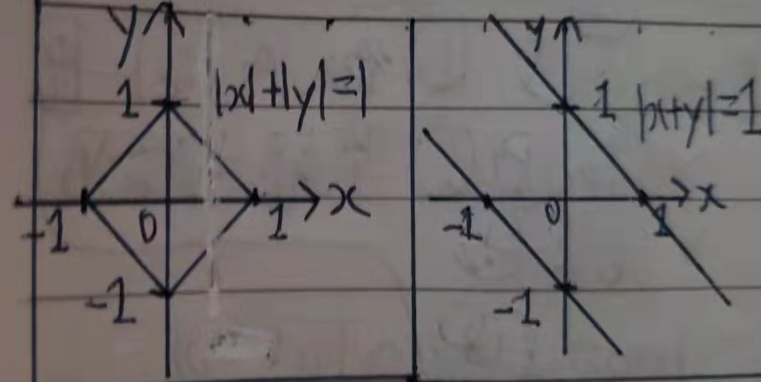 y
1 |x|+|y|=1
-1 0 1 x
-1
y
1 |x+y|=1
-1 0 1 x
-1